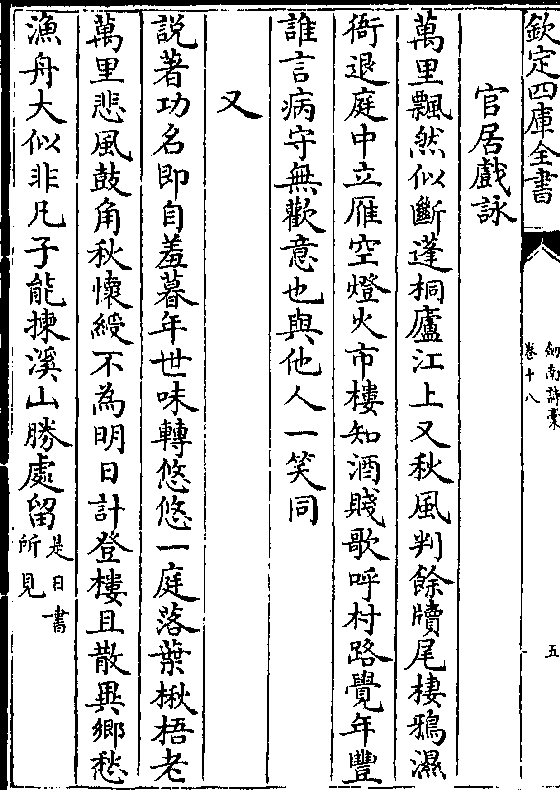 欽定四庫全書
劍南詩稾
卷十八
五
官居戲詠
萬里飄然似斷蓬桐廬江上又秋風判餘牘尾棲鴉濕
衙退庭中立雁空燈火市樓知酒賤歌呼村路覺年豐
誰言病守無歡意也與他人一笑同
又
説著功名即自羞暮年世味轉悠悠一庭落葉楸梧老
萬里悲風鼓角秋懷綬不為明日計登樓且散異鄉愁
漁舟大似非凡子能揀溪山勝處留是日書
所見